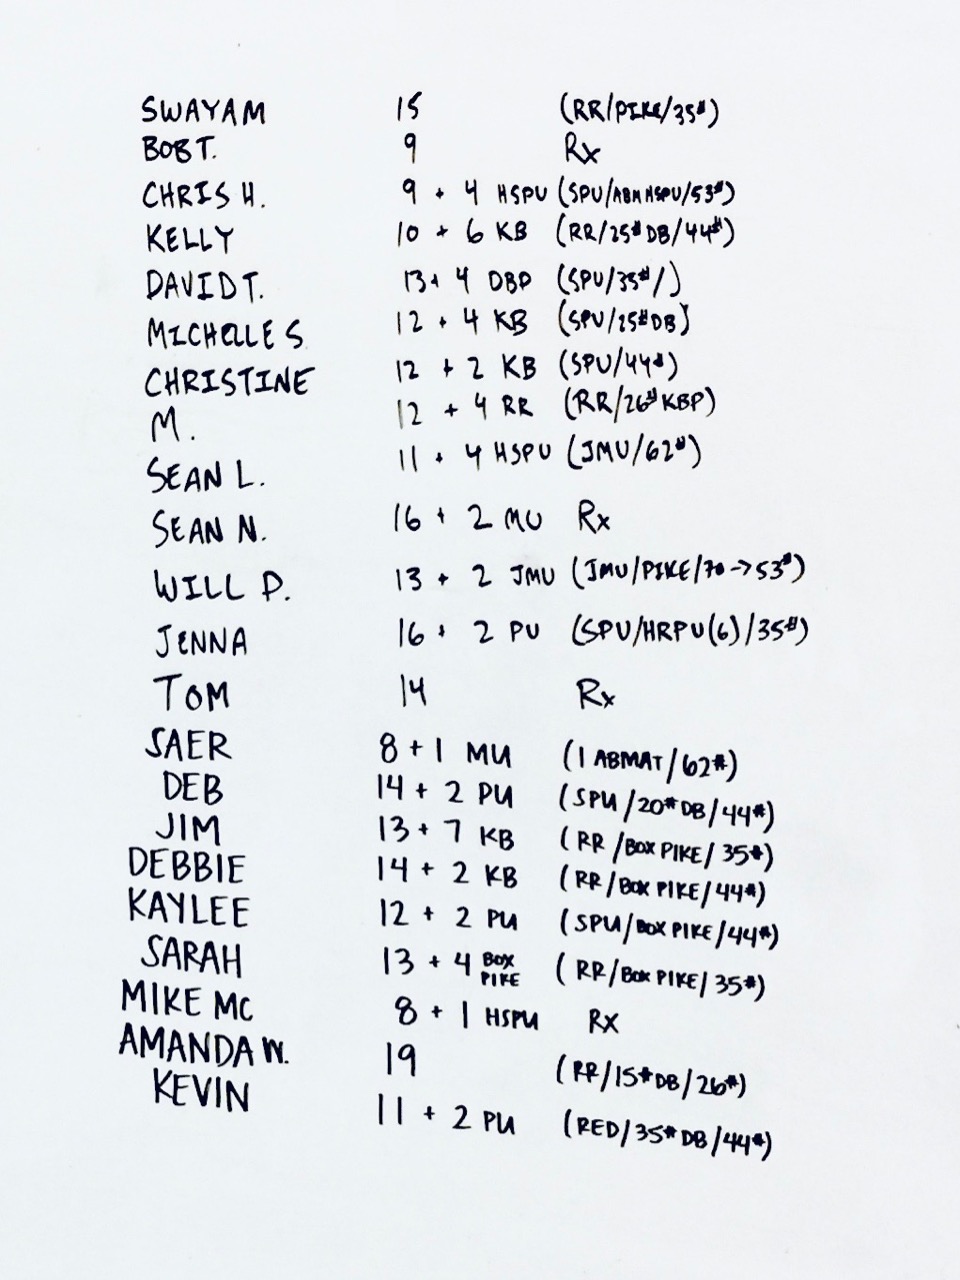 SWAYAM 15 (RR/PIKE/35#)
BOB T. 9 Rx
CHRIS H. 9 + 4 HSPU (SPU/ABM HSPU/53#)
KELLY 10 + 6 KB (RR/25# DB/44#)
DAVID T. 13 + 4 DBP (SPU/35#/)
MICHELLE S 12 + 4 KB (SPU/25# DB)
CHRISTINE 12 + 2 KB (SPU/44#)
M. 12 + 4 RR (RR/26# KBP)
SEAN L. 11 + 4 HSPU (JMU/62#)
SEAN N. 16 + 2 MU Rx
WILL P. 13 + 2 JMU (JMU/PIKE/70->53#)
JENNA 16 + 2 PU (SPU/HRPU(6)/35#)
TOM 14 Rx
SAER 8 + 1 MU (1 ABMAT/62#)
DEB 14 + 2 PU (SPU/20# DB/44#)
JIM 13 + 7 KB (RR/BOX PIKE/35#)
DEBBIE 14 + 2 KB (RR/BOX PIKE/44#)
KAYLEE 12 + 2 PU (SPU/BOX PIKE/44#)
SARAH 13 + 4 BOX PIKE (RR/BOX PIKE/35#)
MIKE MC 8 + 1 HSPU RX
AMANDA W. 19 (RR/15# DB/26#)
KEVIN 11 + 2 PU (RED/35# DB/44#)